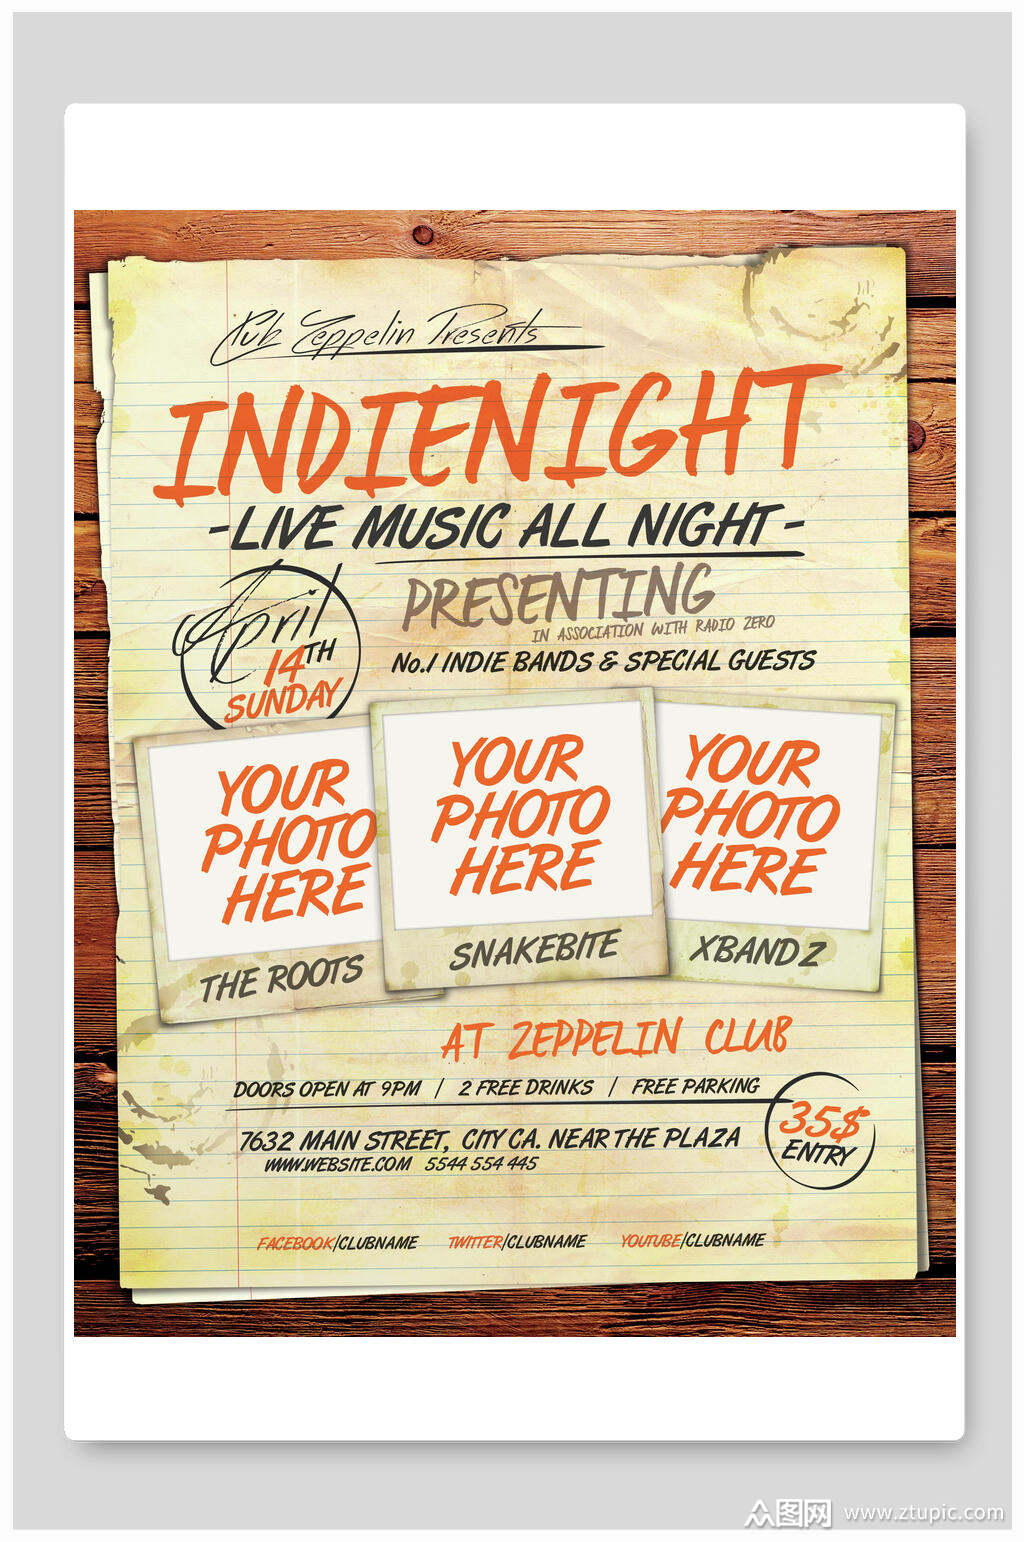 Pub Zeppelin Presents
INDIENIGHT
-LIVE MUSIC ALL NIGHT-
April
14TH
SUNDAY
PRESENTING
IN ASSOCIATION WITH RADIO ZERO
No.1 INDIE BANDS & SPECIAL GUESTS
YOUR
PHOTO
HERE
THE ROOTS
YOUR
PHOTO
HERE
SNAKEBITE
YOUR
PHOTO
HERE
XBANDZ
AT ZEPPELIN CLUB
DOORS OPEN AT 9PM / 2 FREE DRINKS / FREE PARKING
35$
ENTRY
7632 MAIN STREET, CITY CA. NEAR THE PLAZA
WWW.WEBSITE.COM 5544 554 445
FACEBOOK/CLUBNAME TWITTER/CLUBNAME YOUTUBE/CLUBNAME
众图网 www.ztupic.com